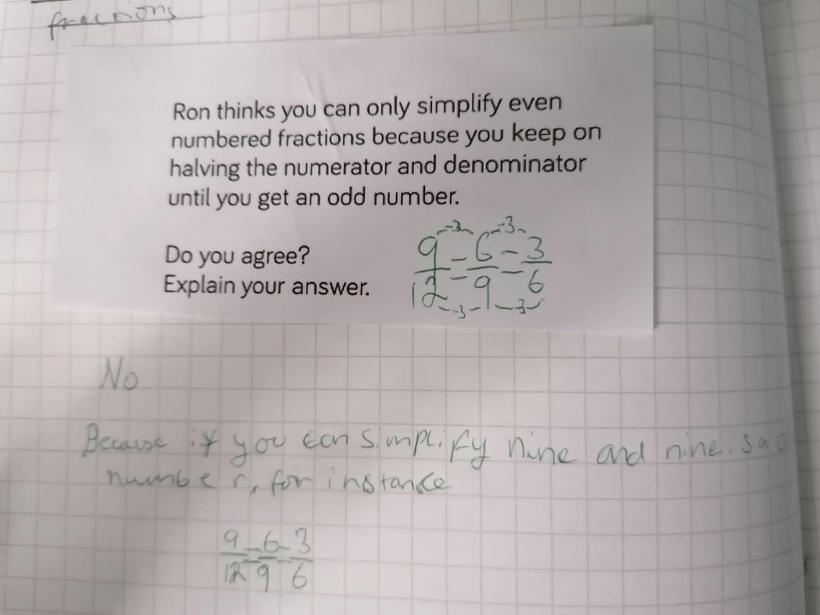 fractions
Ron thinks you can only simplify even
numbered fractions because you keep on
halving the numerator and denominator
until you get an odd number.
Do you agree?
Explain your answer.
-3 -3
9/12 = 6/9 = 3/6
-3 -3
No
Because if you can simplify nine and nine is a
number, for instance
9/12 = 6/9 = 3/6